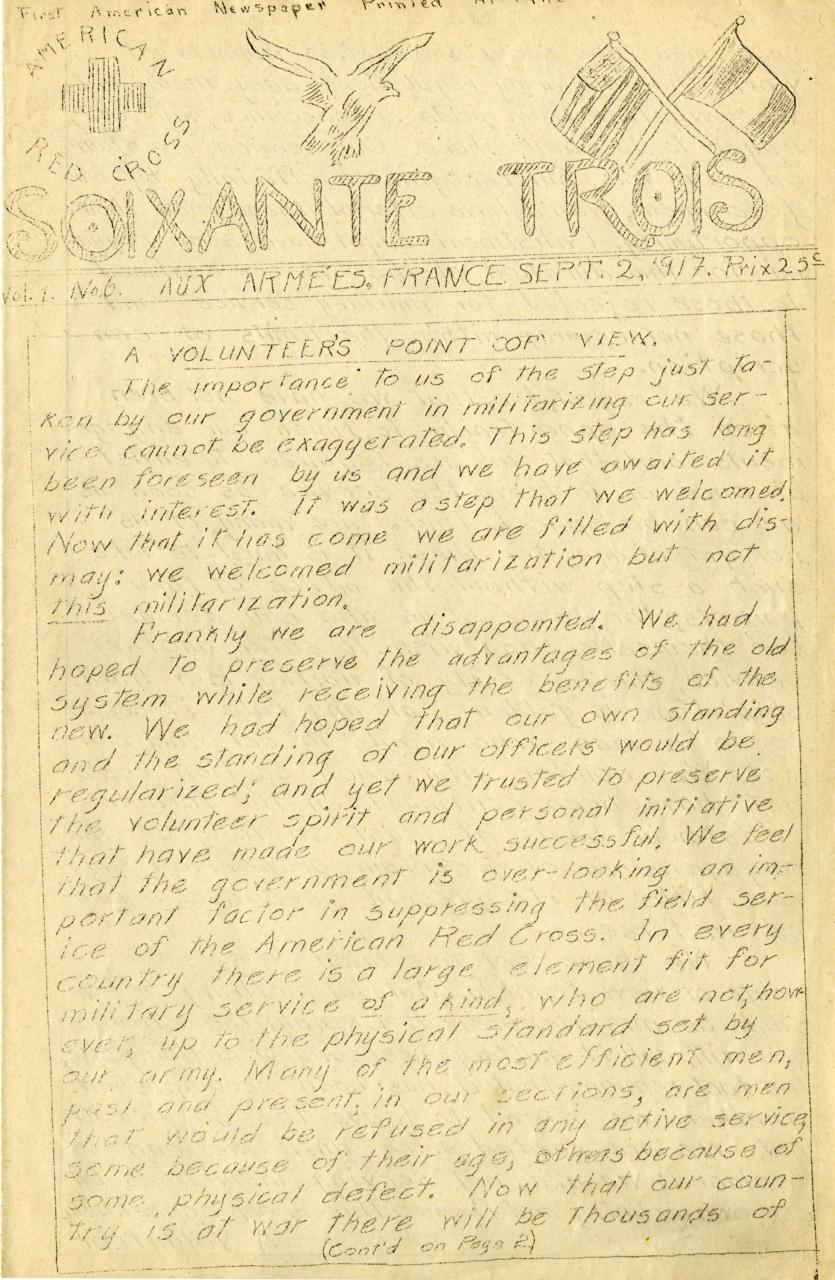 First American Newspaper Printed At The
AMERICAN
RED CROSS
SOIXANTE TROIS
Vol. 1. No.6. AUX ARMÉES, FRANCE SEPT. 2, 1917. Prix 25c
A VOLUNTEER'S POINT OF VIEW.
The importance to us of the step just ta-
ken by our government in militarizing our ser-
vice cannot be exaggerated. This step has long
been foreseen by us and we have awaited it
with interest. It was a step that we welcomed.
Now that it has come we are filled with dis-
may: we welcomed militarization but not
this militarization.
Frankly we are disappointed. We had
hoped to preserve the advantages of the old
system while receiving the benefits of the
new. We had hoped that our own standing
and the standing of our officers would be
regularized; and yet we trusted to preserve
the volunteer spirit and personal initiative
that have made our work successful. We feel
that the government is over-looking an im-
portant factor in suppressing the field ser-
ice of the American Red Cross. In every
country there is a large element fit for
military service of a kind, who are not, how-
ever, up to the physical standard set by
our army. Many of the most efficient men,
past and present, in our sections, are men
that would be refused in any active service,
some because of their age, others because of
some physical defect. Now that our coun-
try is at war there will be thousands of
(Cont'd on Page 2)